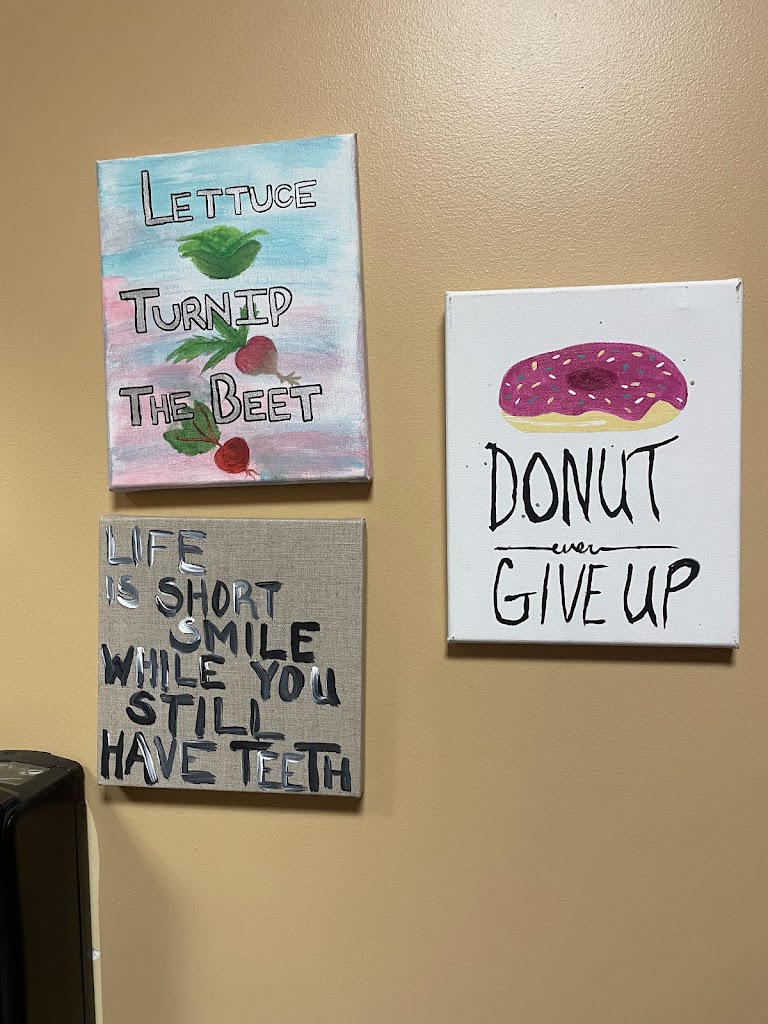 LETTUCE
TURNIP
THE BEET
LIFE
IS SHORT
SMILE
WHILE YOU
STILL
HAVE TEETH
DONUT
ever
GIVE UP